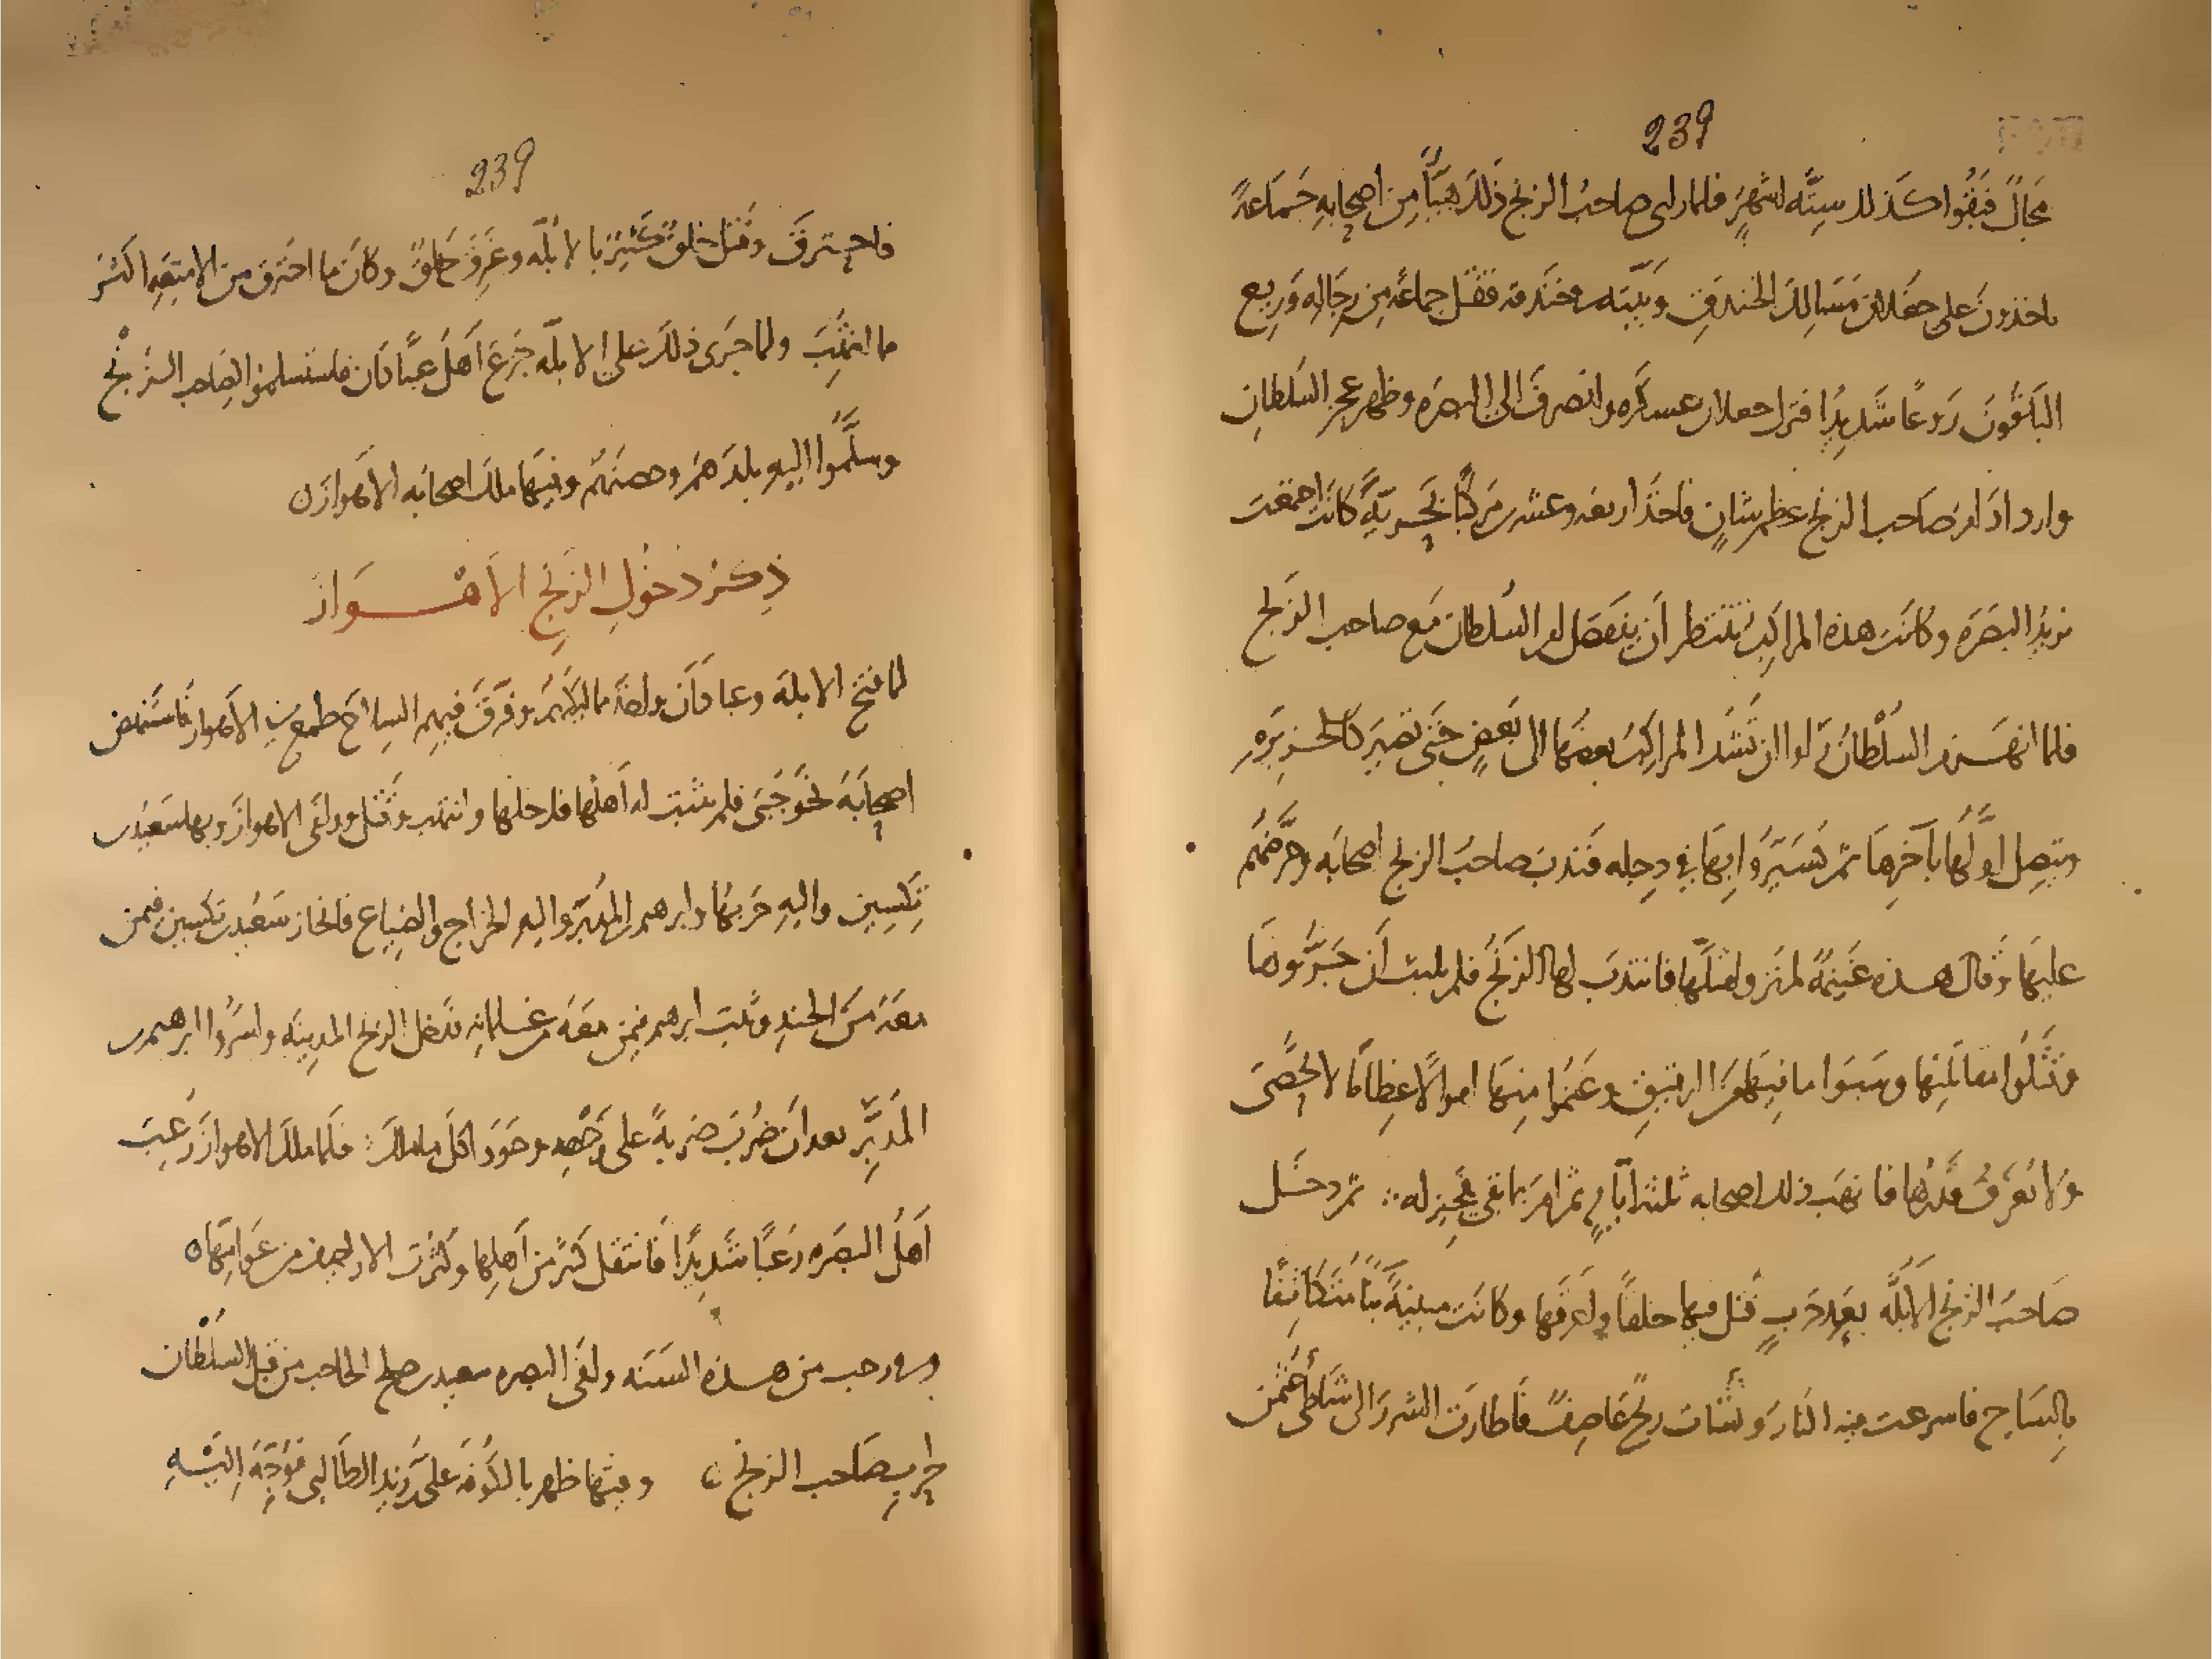 239
مجالٌ فبَقُوا كذلك ستّه اشهر فلما راى صاحبُ الزنج ذلك هيّأ من اصحابه جماعةً
ياخذون على حفلان مَسَالك الخندقِ وبيّته فى خندقه فقتل جماعة من رجاله ورِيع
الباقونَ رَوعًا شديدًا فترك جعلان عسكره وانصرف الى البصره وظهر عجز السلطان
وازداد امر صاحب الزنج عظم شانٍ فاخذ اربعه وعشرين مركبًا بَحريّةً كانت اجتمعت
تريدُ البصره وكانت هذه المراكب تنتظر ان ينفصل امر السُلطان مع صاحب الزنج
فلما انهزم السُلْطانُ رَاوا ان تُشَد المراكبُ بعضها الى بعضٍ حتى تصير كالجزيرَهِ
ويتصِل اوّلُها بآخرها ثم يُسَيّرُوا بها فى دجله فندب صاحبُ الزنج اصحابَه وحرّضَهُم
عليها وقال هذه غنيمةٌ لم تَرَوا مثلَها فانتدبَ لها الزنجُ فلم يلبث أن حَوَوها
وقَتَلُوا مقاتلتها وسَبَوا ما فيها من الرقيقِ وغَنِمُوا منها اموالًا عظامًا لا تُحْصَى
ولا يُعرَفُ قَدرُها فانهبَ ذلك اصحابه ثلثة ايّامٍ ثم امرَ بما بقى فحِيز له ∴ ثم دخل
صَاحبُ الزنج الاُبلّه بعد حَربٍ قُتل فيها خلقًا واَحرقَها وكانت مبنيةً بناءً مُتكاثِفًا
بالسَاجِ فاسرعت فيه النار ونشأت ريحٌ عاصِفٌ فأطارت الشررَ الى شاطىء عُثمن
239
فاحترقَ وقُتل خلقٌ كثيرٌ بالاُبلّه وغرِقَ خَلقٌ وكان ما احترق من الامتعه اكثر
ما انتُهِبَ ولما جَرى ذلك على الاُبلّه جَزعَ أَهلُ عبّادان فاستسلموا لصاحب الزنج
وسلّمُوا اليه بلدَهم وحصنَهُم وفيها ملك اصحابُه الاهواز ۞
ذِكرُ دُخولِ الزنج الاهواز
لما فتح الابله وعبادان واخذ ممَاليكَهم وفَرّقَ فيهم السِلاحَ طمع فى الاهواز فاستنهض
اصحابَهُ نحوَ جُبّى فلم يثبت له أهلُها فدخلها وانتهب وقَتَل ووافى الاهوازَ وبها سعيد بن
تكسِين واليه حَربُها وابرهيم بن المُدبّر واليه الخراج والضياع فانحاز سعيد بن تكسين فيمن
معه من الجندِ وثبت ابرهيم فيمن معه من غلمانه فدخل الزنج المدينه واسَرُوا ابرهيم بن
المدبّر بعد ان ضُرِب ضربةً على وجْهِه وحَوَوا كل ما ملك ∴ فلما ملك الاهوازَ رُعبَ
أهلُ البصَره رُعبًا شديدًا فانتقل كثيرٌ من أهلِها وكَثُرت الاراجيف من عَوامّها ۞
وفى رجب من هذه السَنه وافى البصره سعيد بن صلح الحاجب من قِبل السُلْطان
لحربِ صاحب الزنج ۞ وفيها ظهر بالكُوفه على بن زيد الطالبى فوُجّهَ اليه